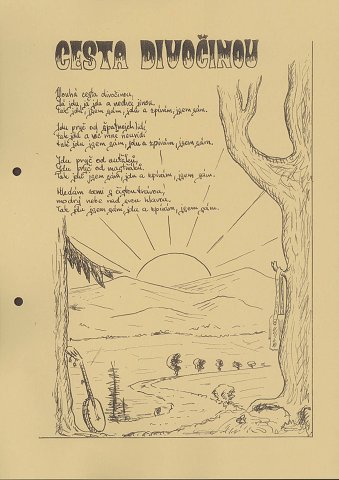 CESTA DIVOČINOU
Dlouhá cesta divočinou,
já jdu, já jdu a nechci jinou.
Tak jdu, jsem sám, jdu a zpívám, jsem sám.
Jdu pryč od špatných lidí,
tak jdu, jsem sám, jdu a zpívám, jsem sám.
Jdu pryč od
Jdu pryč od
Tak jdu, jsem sám, jdu a zpívám, jsem sám.
Hledám zemi s čistou trávou,
modrý nebe nad svou hlavou.
Tak jdu, jsem sám, jdu a zpívám, jsem sám.